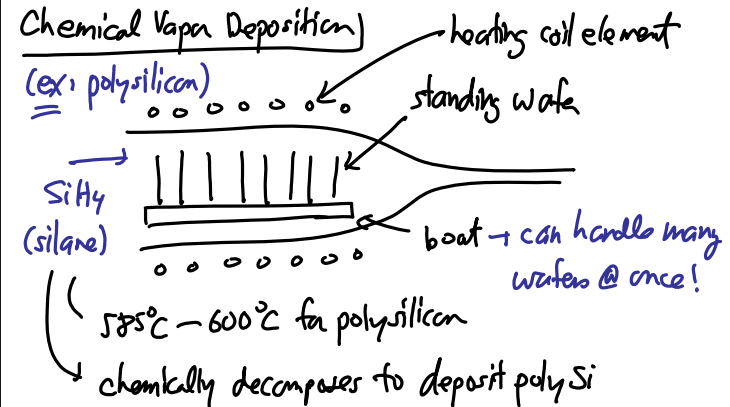 Chemical Vapor Deposition
(ex: polysilicon)
heating coil element
standing wafer
SiH4
(silane)
boat → can handle many
wafers @ once!
585°C — 600°C for polysilicon
chemically decomposes to deposit poly Si